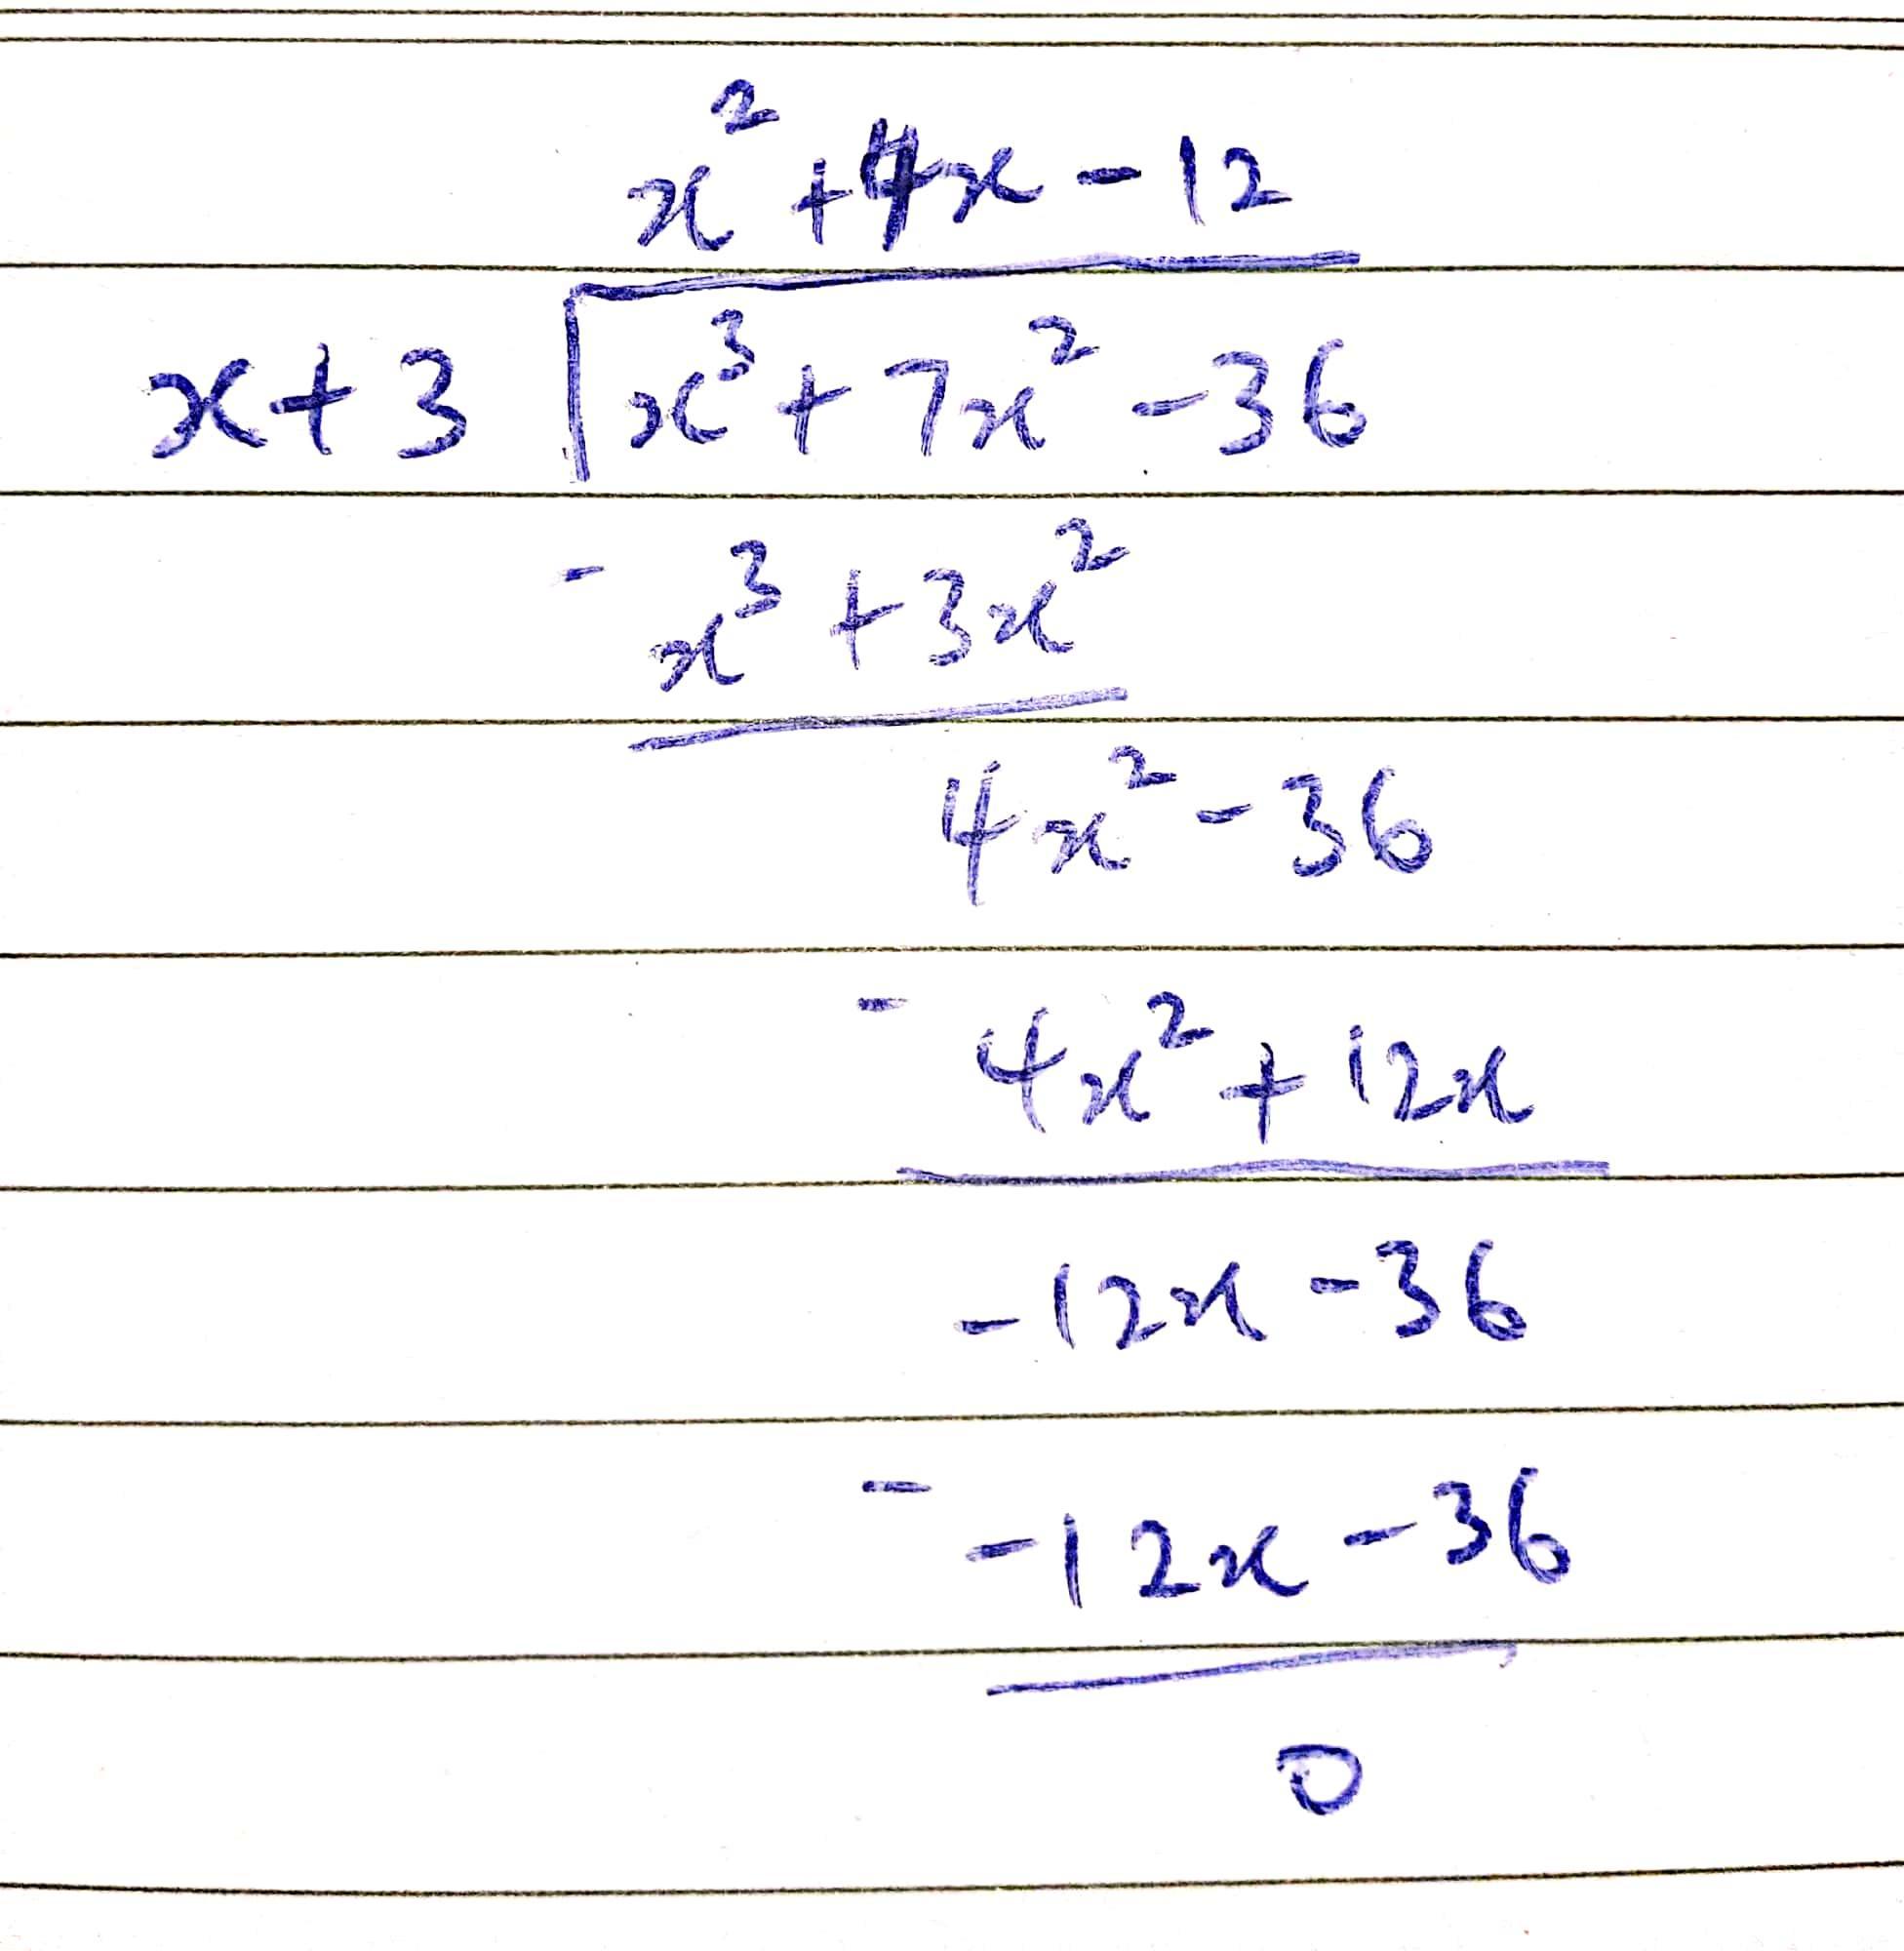 x² + 4x - 12
x + 3 | x³ + 7x² - 36
- x³ + 3x²
4x² - 36
- 4x² + 12x
-12x - 36
- -12x - 36
0